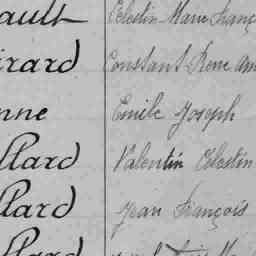 ault Célestin Marie Franç
rard Constant Rene Am
nne Emile Joseph
llard Valentin Célestin
llard Jean François
llard